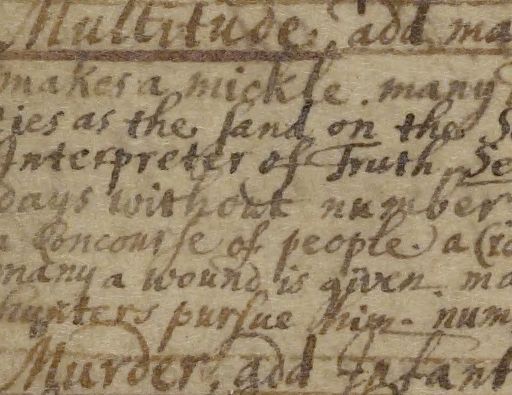 Multitude, add ma
makes a mickle. many
lies as the sand on the S
Interpreter of Truth. Se
days without number
a Concourse of people. a Cro
many a wound is given. ma
hunters pursue him. num
Murder, add Infant